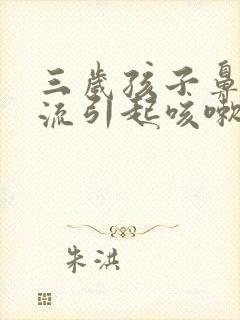 三歲孩子鼻
流引起咳嗽
朱洪